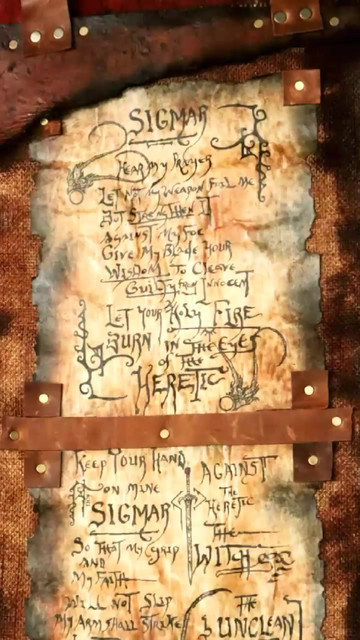 SIGMAR
HEAR MY PRAYER
LET NOT MY WEAPON FAIL ME
BUT STRENGTHEN IT
AGAINST MY FOE
GIVE MY BLADE YOUR
WISDOM TO CLEAVE
GUILTY FROM INNOCENT
LET YOUR HOLY FIRE
BURN IN THE EYES
OF THE
HERETIC
KEEP YOUR HAND
ON MINE
SIGMAR
SO THAT MY GRIP
AND
MY FAITH
WILL NOT SLIP
MY ARM SHALL STRIKE
AGAINST
THE
HERETIC
THE
WITCH
THE
UNCLEAN